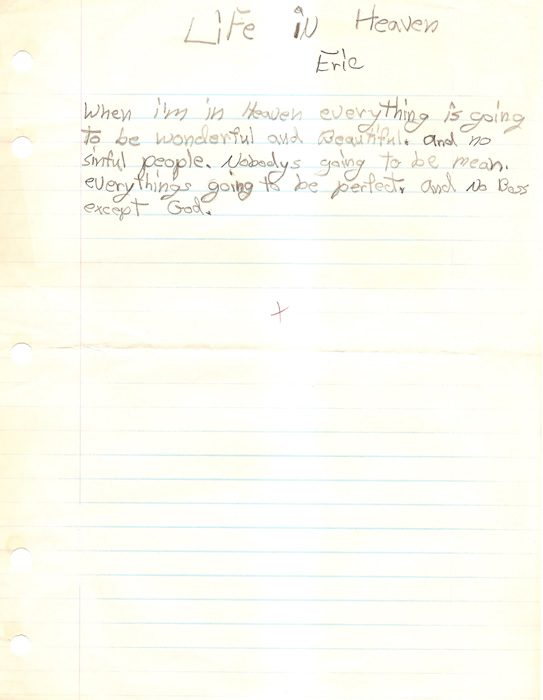 Life in Heaven
Eric
When i'm in Heaven everything is going
to be wonderful and Beautiful. and no
sinful people. Nobodys going to be mean.
everythings going to be perfect. and No Boss
except God.
+